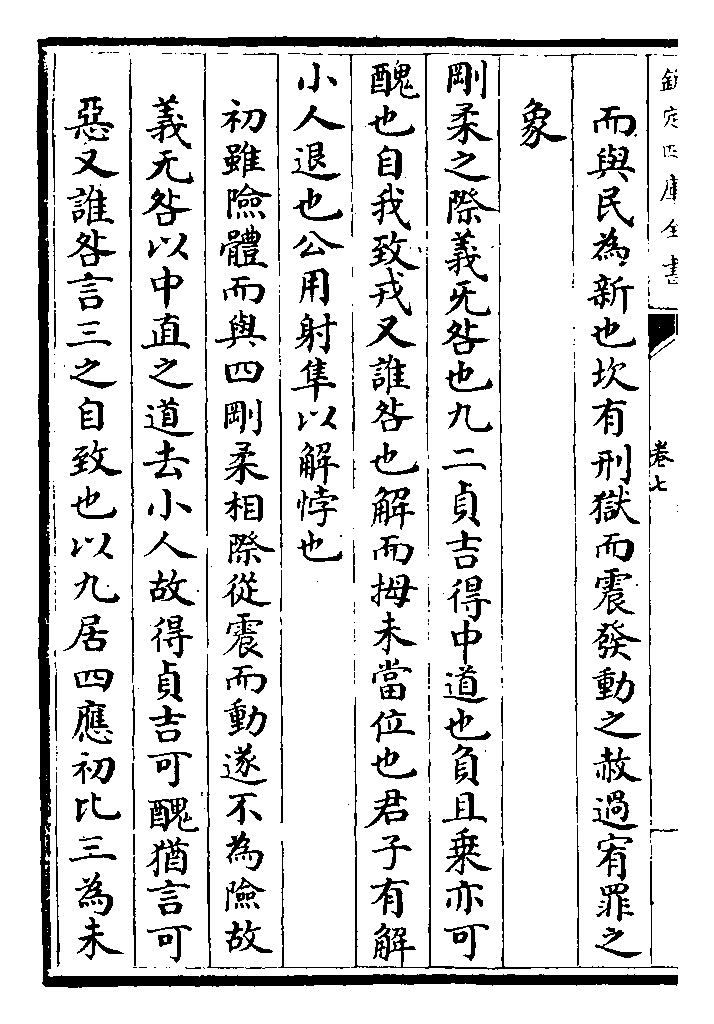 欽定四庫全書
卷七
而與民為新也坎有刑獄而震發動之赦過宥罪之
象
剛柔之際義旡咎也九二貞吉得中道也負且乗亦可
醜也自我致戎又誰咎也解而拇未當位也君子有解
小人退也公用射隼以解悖也
初雖險體而與四剛柔相際從震而動遂不為險故
義无咎以中直之道去小人故得貞吉可醜猶言可
惡又誰咎言三之自致也以九居四應初比三為未